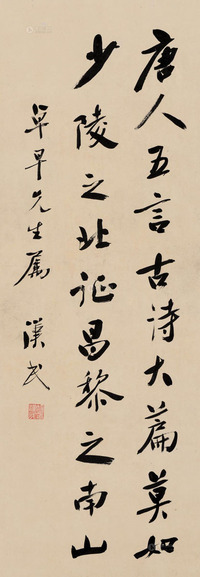 唐人五言古诗大篇莫如
少陵之北征昌黎之南山
早先生属
漢民